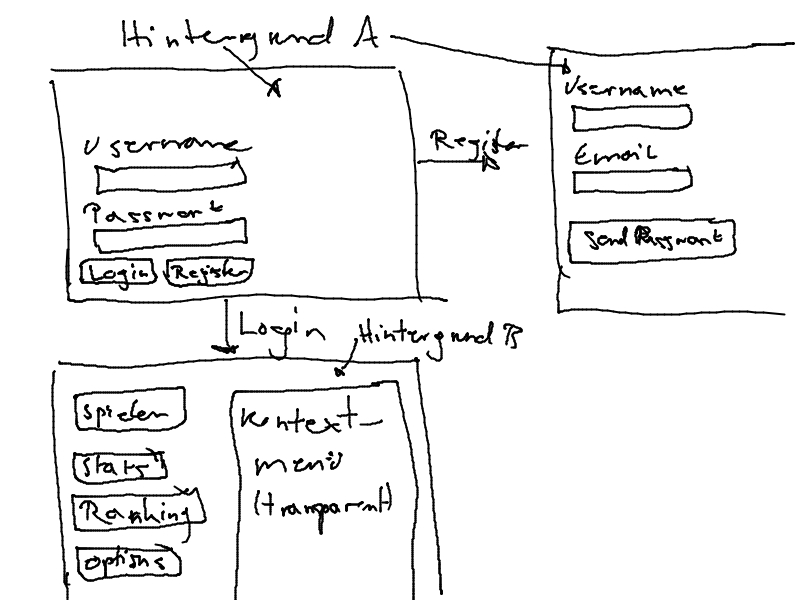 Hintergrund A
Username
Passwort
Login Register
Register
Username
Email
Send Passwort
Login
Hintergrund B
spielen
Stats
Ranking
options
Kontext-
menü
(transparent)